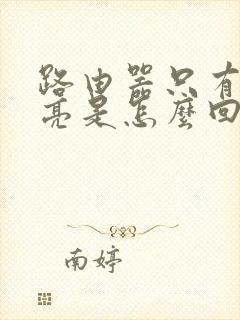 路由器只有
亮是怎麼回
南婷